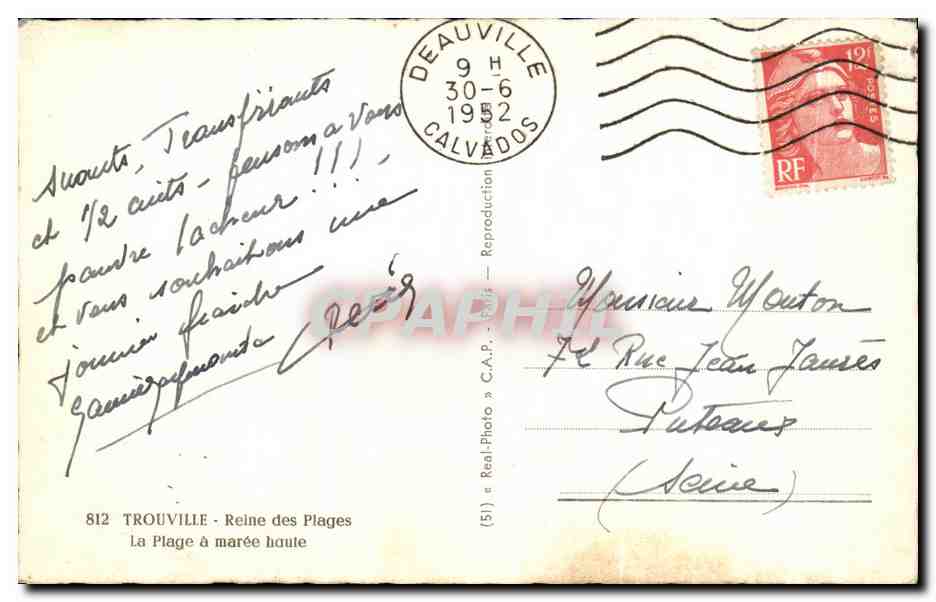 Suants, Transpirants
et 1/2 cuits - pensons a Vous
pauvre lacheur !!!
et vous souhaitons une
fraiche
DEAUVILLE
9 H
30-6
1952
CALVADOS
12F
POSTES
RF
CPAPHIL
Monsieur Mouton
Rue Jean Jaurès
Puteaux
(Seine)
(51) « Real-Photo » C.A.P. - Paris — Reproduction
812 TROUVILLE - Reine des Plages
La Plage à marée haute